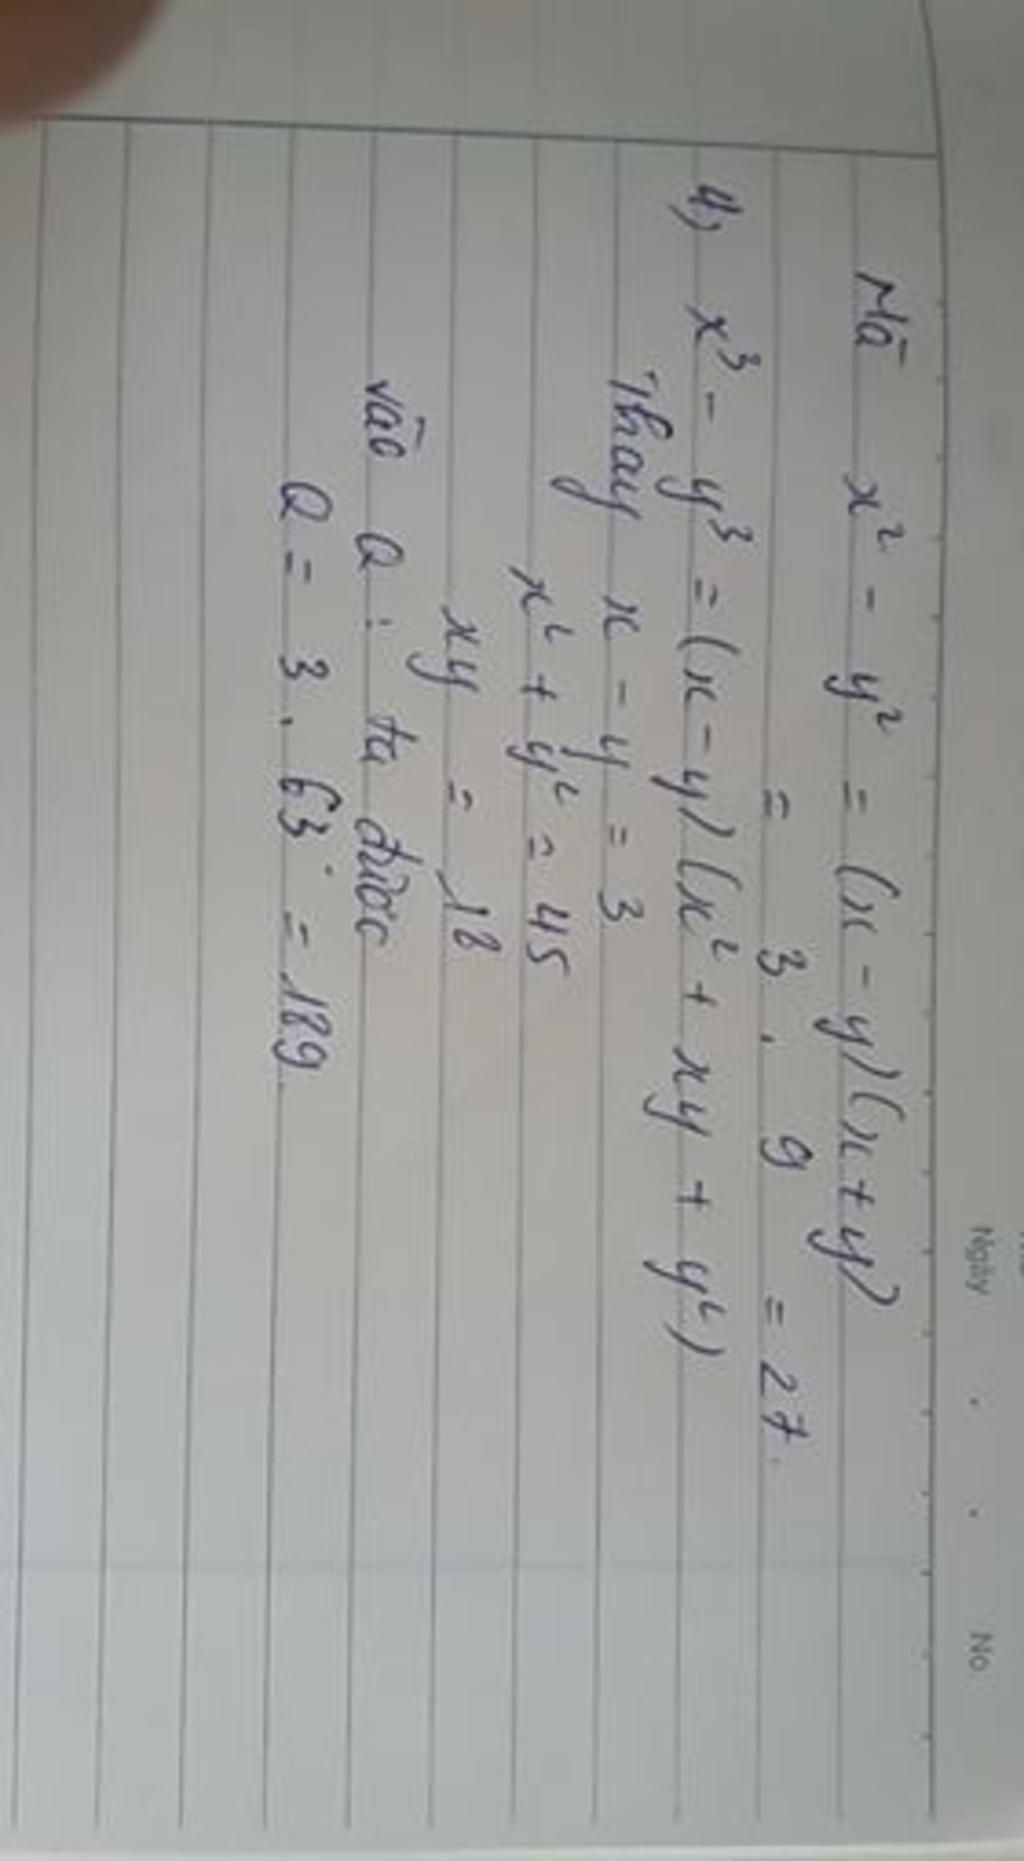 Ngày . . No.
Mà x² - y² = (x - y)(x + y)
= 3 . 9 = 27.
4, x³ - y³ = (x - y)(x² + xy + y²)
Thay x - y = 3
x² + y² = 45
xy = 18
vào Q : ta được
Q = 3 . 63 = 189.